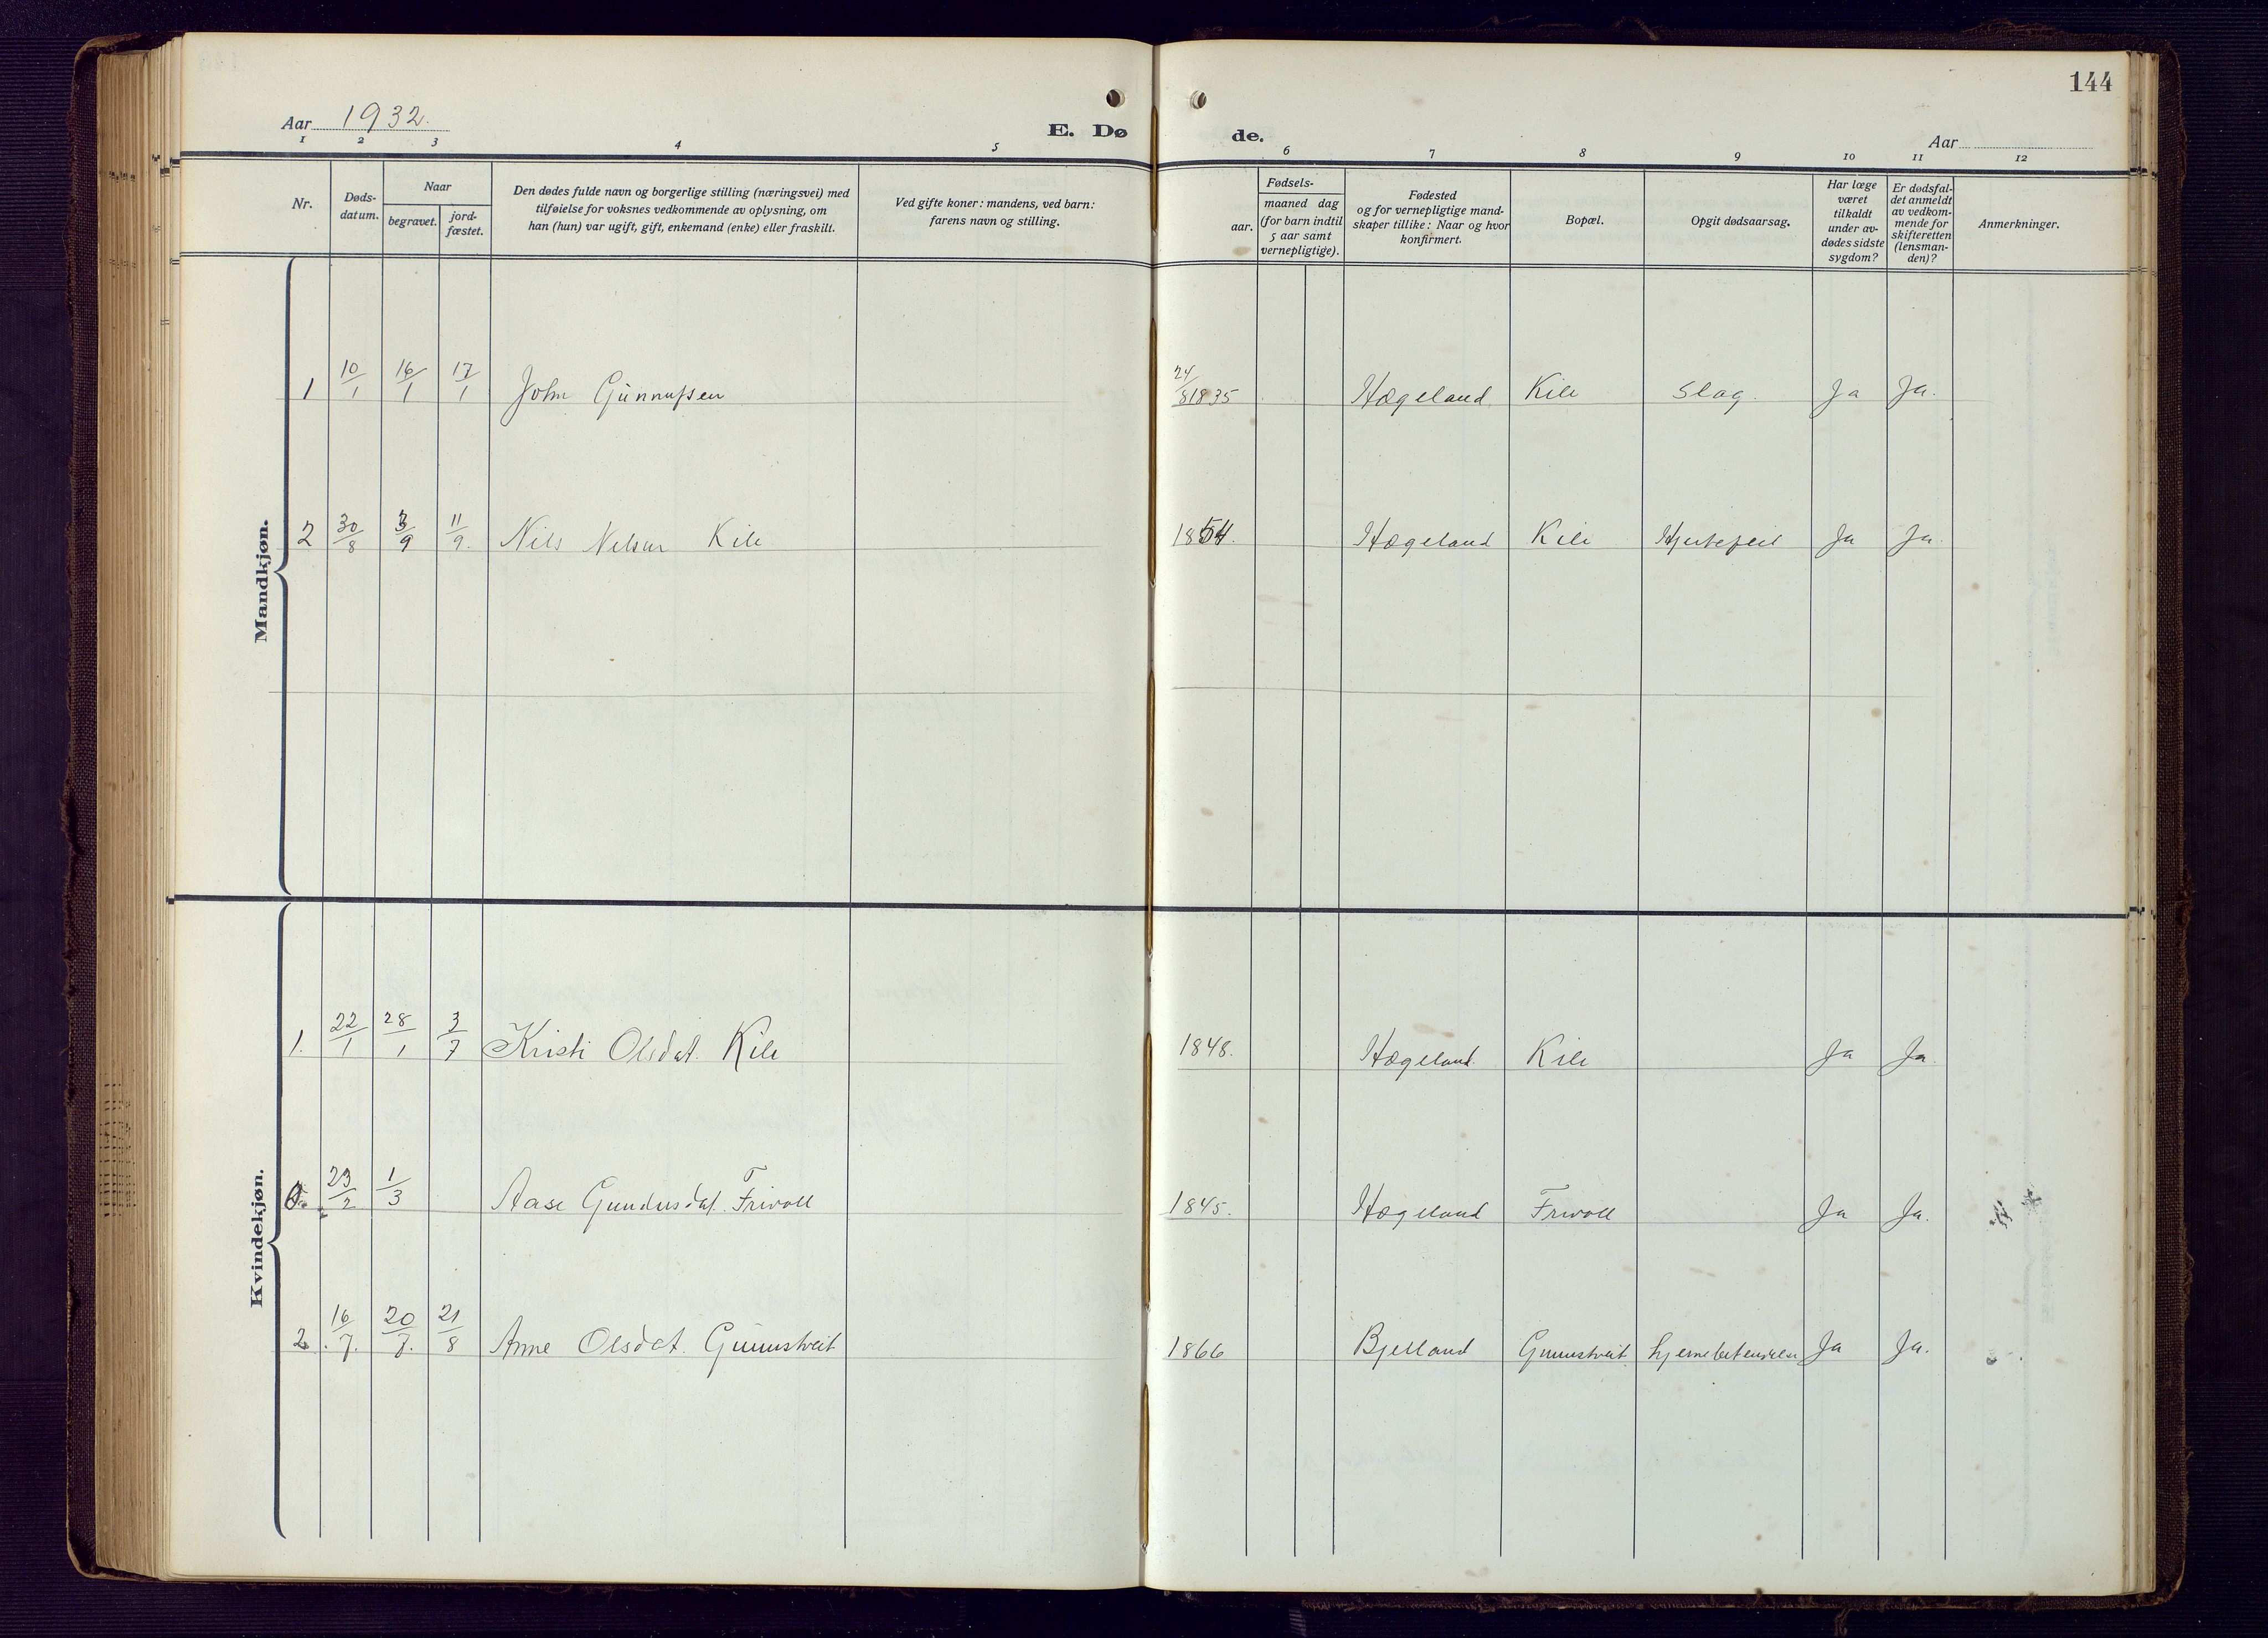 144
Aar 1932.
E. Døde.
Aar
1 2 3 4 5 6 7 8 9 10 11 12
Nr.
Døds-
datum.
Naar
begravet.
jord-
fæstet.
Den dødes fulde navn og borgerlige stilling (næringsvei) med
tilføielse for voksnes vedkommende av oplysning, om
han (hun) var ugift, gift, enkemand (enke) eller fraskilt.
Ved gifte koner: mandens, ved barn:
farens navn og stilling.
Fødsels-
aar.
maaned dag
(for barn indtil
5 aar samt
vernepligtige).
Fødested
og for vernepligtige mand-
skaper tillike: Naar og hvor
konfirmert.
Bopæl.
Opgit dødsaarsag.
Har læge
været
tilkaldt
under av-
dødes sidste
sygdom?
Er dødsfal-
det anmeldt
av vedkom-
mende for
skifteretten
(lensman-
den)?
Anmerkninger.
Mandkjøn.
1 10/1 16/1 17/1 John Gunnufsen 24/8 1835 Hægeland Kile Slag. Ja Ja.
2 30/8 3/9 11/9. Nils Nelsen Kile 1854. Hægeland Kile Hjertefeil Ja Ja.
Kvindekjøn.
1. 22/1 28/1 3/7 Kristi Olsdat. Kile 1848. Hægeland Kile Ja Ja
23/2 1/3 Aase Frivoll 1845. Hægeland Frivoll Ja Ja.
2. 16/7. 20/7. 21/8 Anne Olsdat. Gumstveit 1866 Bjelland Gumstveit hjernebetendelse Ja Ja.